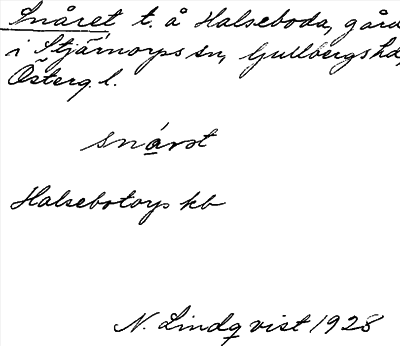 Snåret t. å Halseboda, gård
i Stjärnorps sn, Gullbergs hd,
Österg. l.
snå̱rət
Halsebotorps kb
N. Lindqvist 1928